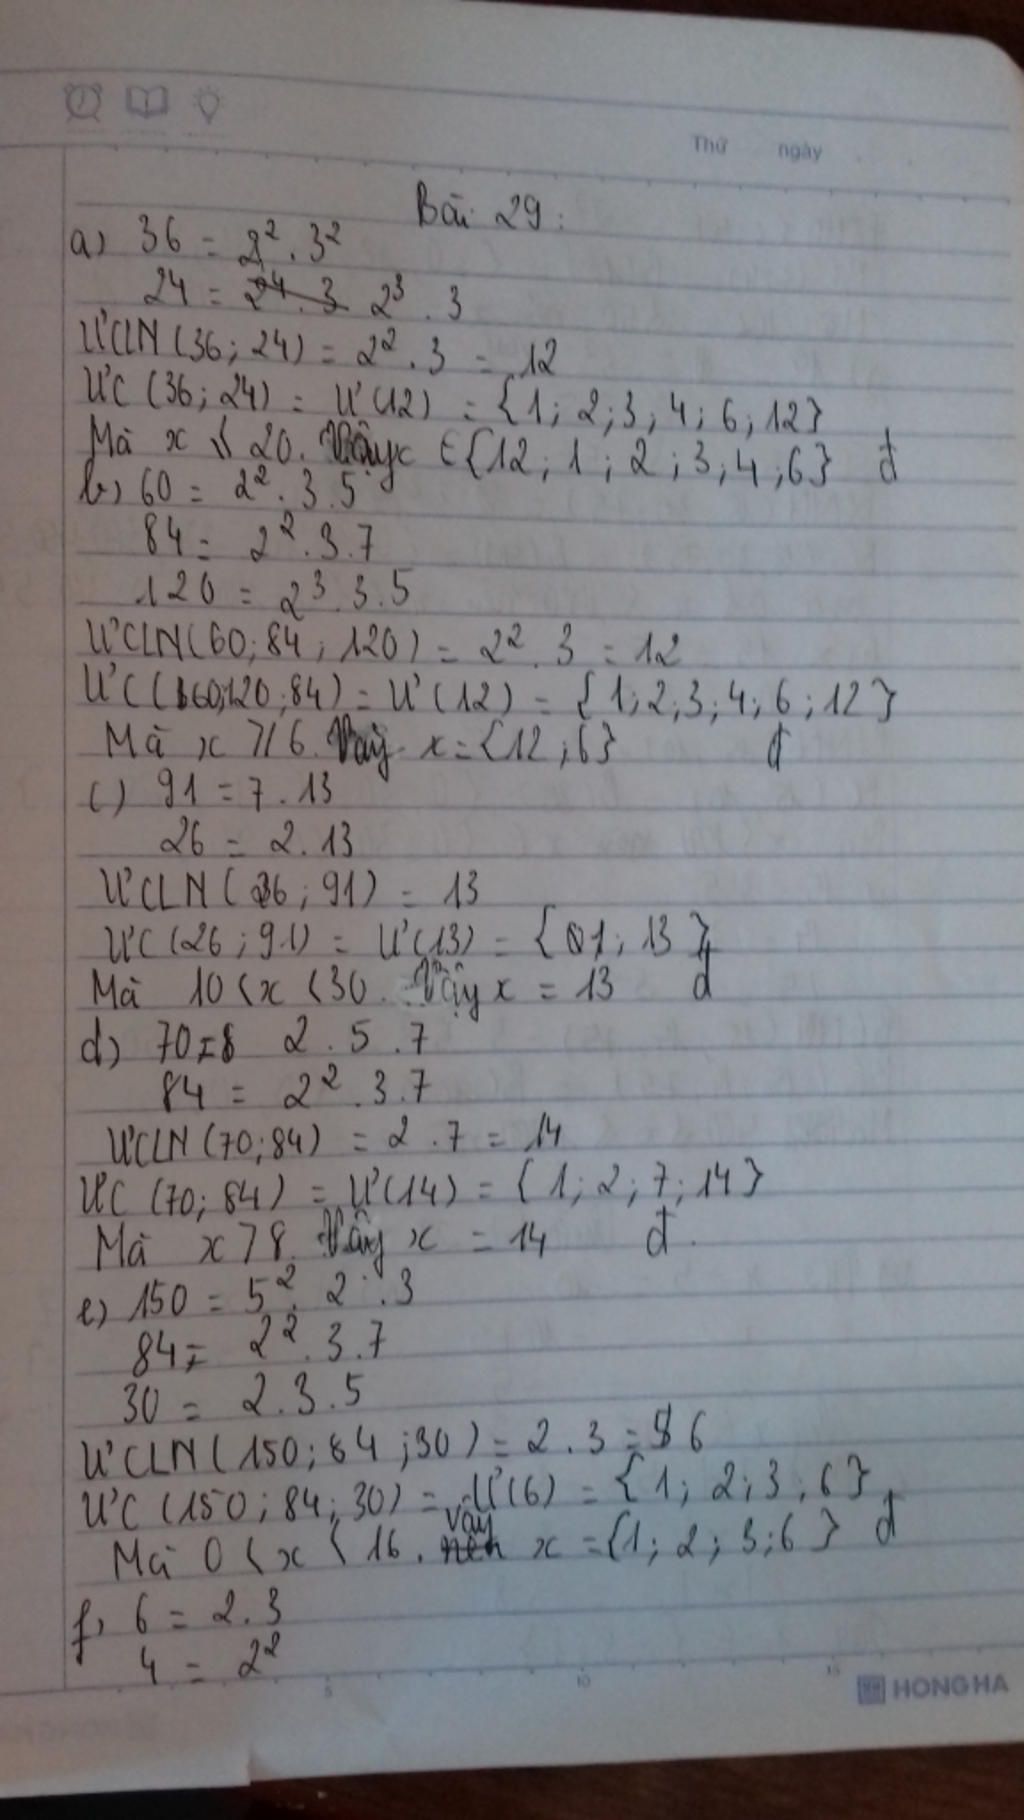 Thứ ngày
Bài 29:
a) 36 = 2² . 3²
24 = 2⁴ . 3 2³ . 3
ƯCLN (36; 24) = 2² . 3 = 12
ƯC (36; 24) = Ư(12) = {1; 2; 3; 4; 6; 12}
Mà x ≤ 20. Vậy x ∈ {12; 1; 2; 3; 4; 6} đ
b) 60 = 2² . 3 . 5
84 = 2² . 3 . 7
120 = 2³ . 3 . 5
ƯCLN(60; 84; 120) = 2² . 3 = 12
ƯC(60; 120; 84) = Ư(12) = {1; 2; 3; 4; 6; 12}
Mà x ≥ 6. Vậy x = {12; 6} đ
c) 91 = 7 . 13
26 = 2 . 13
ƯCLN (26; 91) = 13
ƯC (26; 91) = Ư(13) = {1; 13} đ
Mà 10 < x < 30. Vậy x = 13 đ
d) 70 = 2 . 5 . 7
84 = 2² . 3 . 7
ƯCLN (70; 84) = 2 . 7 = 14
ƯC (70; 84) = Ư(14) = {1; 2; 7; 14}
Mà x > 8. Vậy x = 14 đ.
e) 150 = 5² . 2 . 3
84 = 2² . 3 . 7
30 = 2 . 3 . 5
ƯCLN (150; 84; 30) = 2 . 3 = 6
ƯC (150; 84; 30) = Ư(6) = {1; 2; 3; 6}
Mà 0 < x < 16. nên vậy x = {1; 2; 3; 6} đ
f) 6 = 2 . 3
4 = 2²
5 10 15
HONG HA